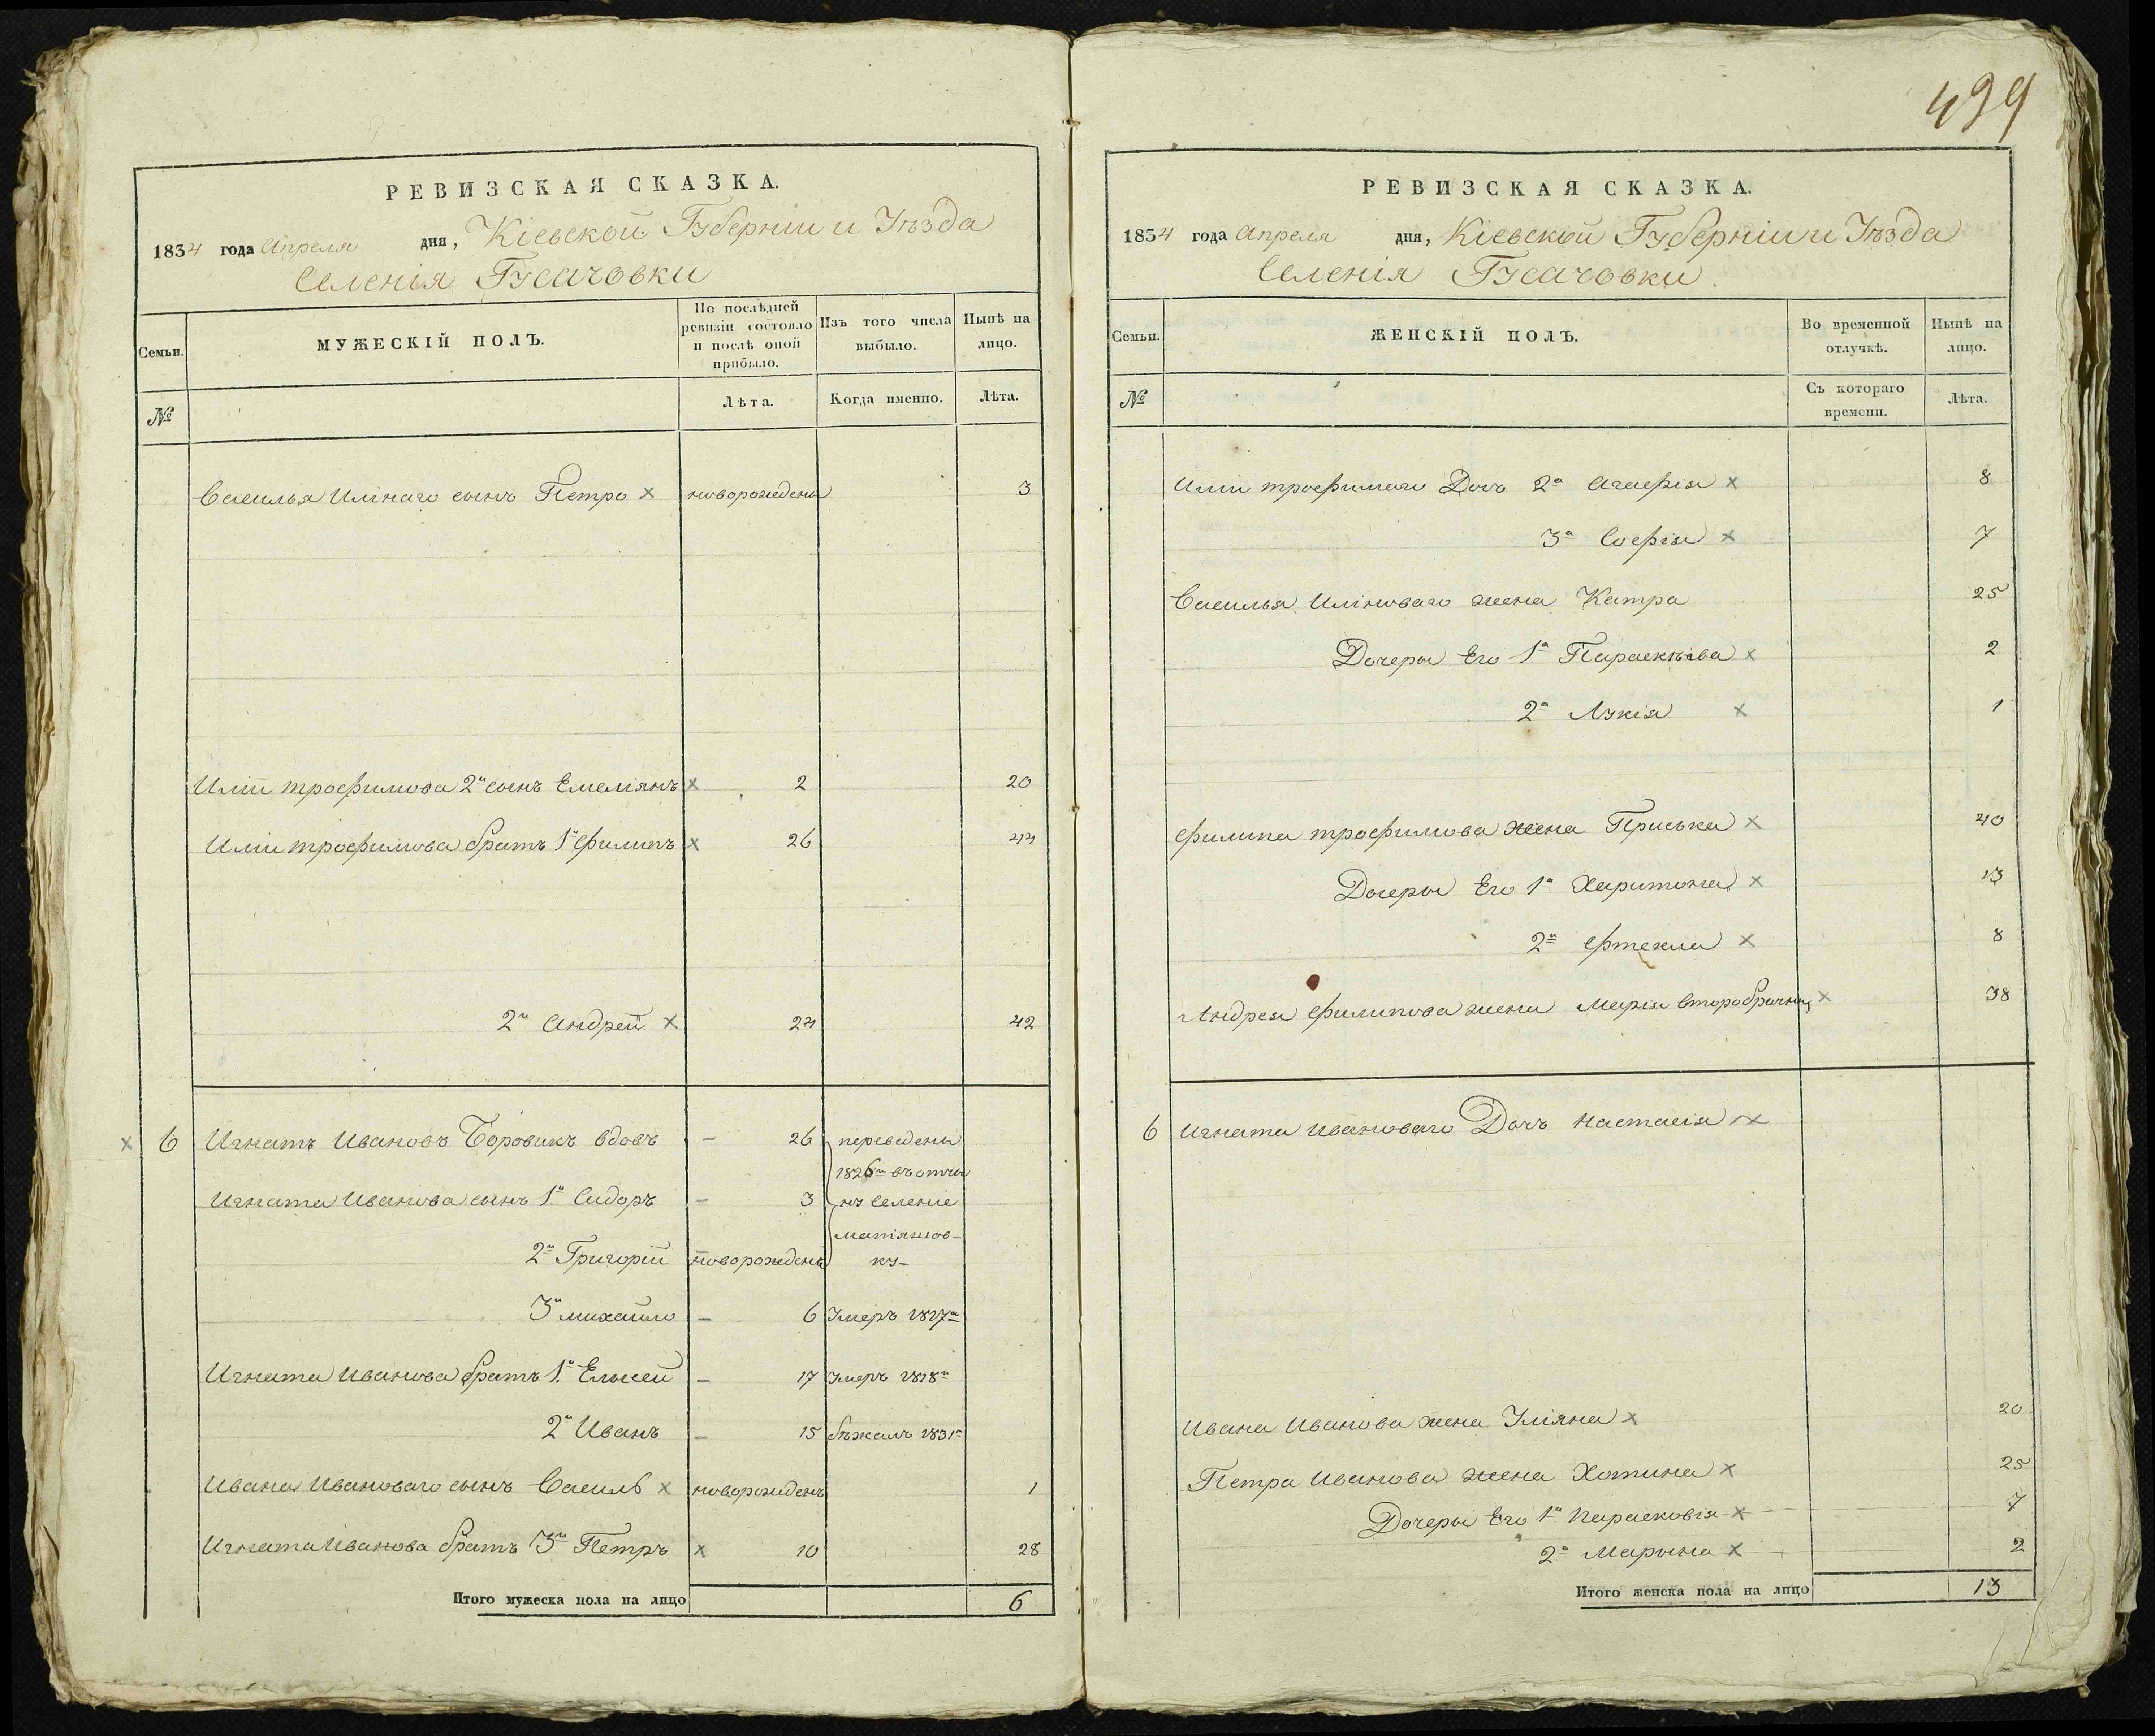 499
РЕВИЗСКАЯ СКАЗКА.
1834 года Апреля дня, Кіевской Губерніи и Уѣзда
Селенія Гусачовки
Семьи.
МУЖЕСКІЙ ПОЛЪ.
По послѣдней ревизіи состояло и послѣ оной прибыло.
Изъ того числа выбыло.
Нынѣ на лицо.
№
Лѣта.
Когда именно.
Лѣта.
Василья Илінаго сынъ Петро х новорожденъ 3
Иліи трофимова 2й сынъ Емеліянъ х 2 20
Иліи трофимова братъ 1й Филипъ х 26 44
2й Андрей х 24 42
х 6 Игнатъ Ивановъ Боровикъ вдовъ - 26 переведены
1826го въ отчи
Игната Иванова сынъ 1й Сидоръ - 3 ну Селеніе
матіяшов-
2й Григорій новорожденъ ку-
3й михайло - 6 Умеръ 1827го
Игната Иванова братъ 1й Елисей - 17 Умеръ 1818го
2й Иванъ - 15 бѣжалъ 1831го
Ивана Ивановаго сынъ Василь х новорожденъ 1
Игната Иванова братъ 3й Петръ х 10 28
Итого мужеска пола на лицо 6
РЕВИЗСКАЯ СКАЗКА.
1834 года Апреля дня, Кіевской Губерніи и Уѣзда
Селенія Гусачовки.
Семьи.
ЖЕНСКІЙ ПОЛЪ.
Во временной отлучкѣ.
Нынѣ на лицо.
№
Съ котораго времени.
Лѣта.
Иліи трофимаго Дочь 2я Агафія х 8
3я Софія х 7
ВасильяИліноваго жена Катра 25
Дочеры Его 1я Параскѣва х 2
2я Лукія х 1
Филипа трофимова жена Приська х 40
Дочеры Его 1я Харитона х 13
2я Фтекла х 8
Андрея Филипова жена Марія второбрачна х 38
6 Игната Ивановаго Дочь Настасія х
Ивана Иванова жена Уліяна х 20
Петра Иванова жена Хотина х 25
Дочеры Его 1я Парасковія х 7
2я Марына х 2
Итого женска пола на лицо 13